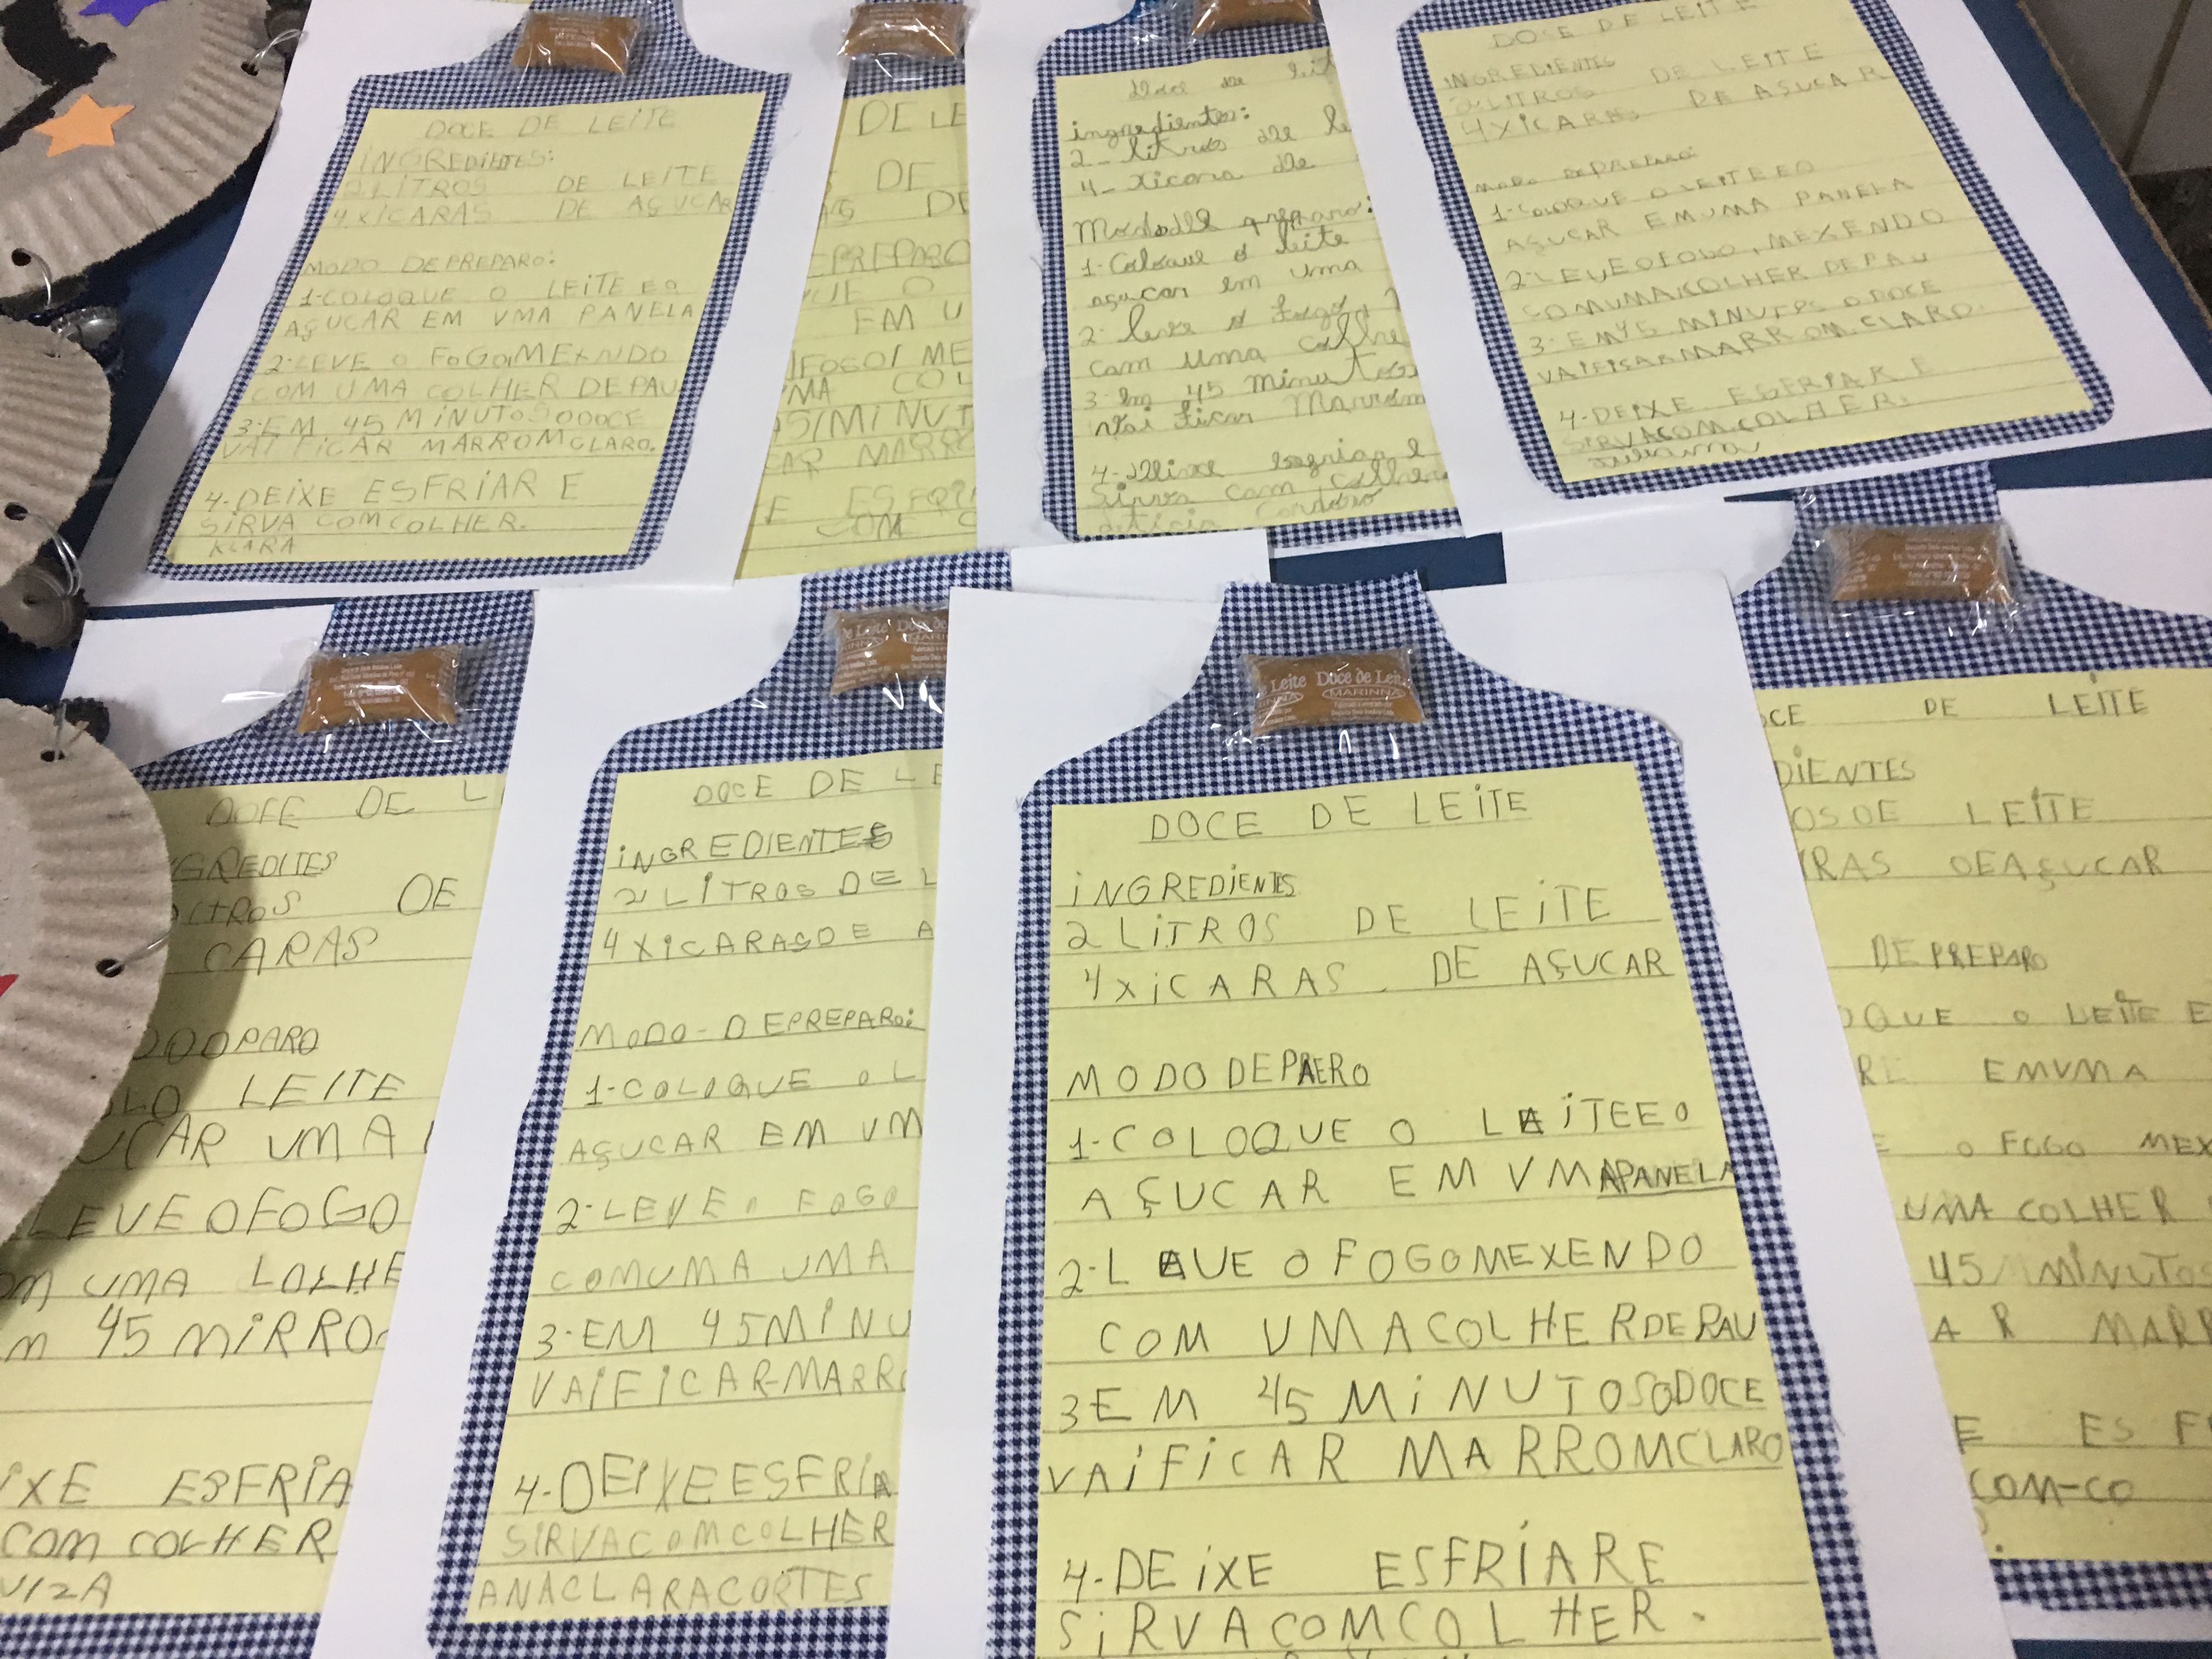 DOCE DE LEITE
INGREDIETES:
2 LITROS DE LEITE
4 XICARAS DE AÇUCAR
MODO DEPREPARO:
1-COLOQUE O LEITE EO
AÇUCAR EM UMA PANELA
2-LEVE O FOGO MEXNDO
COM UMA COLHER DEPAU
3-EM 45 MINUTOS ODOCE
VAI FICAR MARROMCLARO.
4-DEIXE ESFRIAR E
SIRVA COMCOLHER.
KLARA
DE LE
DE
DE
EPREPARO
UE O
EM U
FOGO ME
MA COL
MINUT
CAR MARRO
E ESFRI
COM C
Doce de leit
ingredientes:
2- litros de le
4- xicara de
Modo de preparo:
1-Coloque o leite
açucar em uma
2- leve o fogo,
com uma colhe
3- Em 45 Minutos
vai ficar Marrom
4-Deixe esfriar e
Sirva com colher
Cardoso
DOSE DE LEITE
INGREDIENTES
2 LITROS DE LEITE
4 XICARAS DE ASUCAR
MODO DEPREPARO
1-COLOQUE O LEITE EO
AÇUCAR EMUMA PANELA
2-LEVEOFOGO, MEXENDO
COMUMACOLHER DEPAU
3-EM45 MINUTOS O DOCE
VAIFICARMARROM CLARO.
4-DEIXE ESFRIAR E
SIRVACOM COLHER.
DOFE DE L
GREDITES
LTROS DE
CARAS
ODOPARO
LO LEITE
UCAR UMA
LEVE OFOGO
OM UMA LOLHE
M 45 MIRRO
IXE ESFRIA
COM COLHER
UIZA
de Leite Doce de
DOCE DE LE
INGREDIENTES
2 LITROS DE L
4 XICARASDE A
MODO-DEPREPARO:
1-COLOQUE O L
AÇUCAR EM UM
2-LEVE O FOGO
COMUMA UMA
3-EM 45MINU
VAIFICAR-MARRO
4-DEIXEESFRIA
SIRVACOMCOLHER
ANACLARACORTES
Leite Doce de Leit
MARINNA
DOCE DE LEITE
INGREDIENTES
2 LITROS DE LEITE
4 XICARAS DE AÇUCAR
MODO DEPAERO
1-COLOQUE O LEITEEO
AÇUCAR EM UMAPANELA
2-LEVE O FOGOMEXENDO
COM UMACOLHERDEPAU
3EM 45 MINUTOSODOCE
VAIFICAR MARROMCLARO
4-DEIXE ESFRIARE
SIRVACOMCOLHER.
OCE DE LEITE
DIENTES
OSDE LEITE
RAS DEAÇUCAR
DEPREPARO
OQUE O LEITE E
RE EMUMA
E O FOGO MEX
UMA COLHER
45 MINUTOS
AR MARR
E ESF
COM-CO